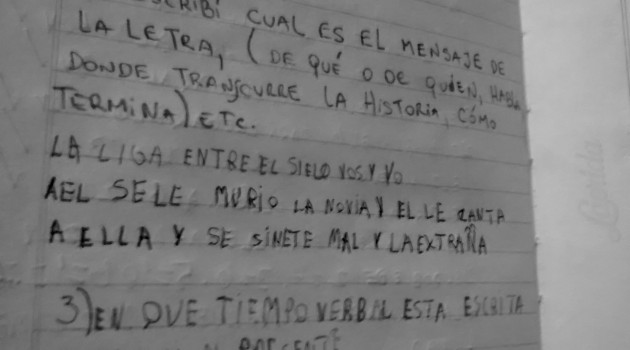 ESCRIBÍ CUAL ES EL MENSAJE DE
LA LETRA, (DE QUÉ O DE QUIEN, HABLA
DONDE TRANSCURRE LA HISTORIA, CÓMO
TERMINA) ETC.
LA LIGA ENTRE EL SIELO VOS Y YO
AEL SELE MURIO LA NOVIA Y EL LE CANTA
A ELLA Y SE SINETE MAL Y LA EXTRAÑA
3) EN QUE TIEMPO VERBAL ESTA ESCRITA
PRECENTE